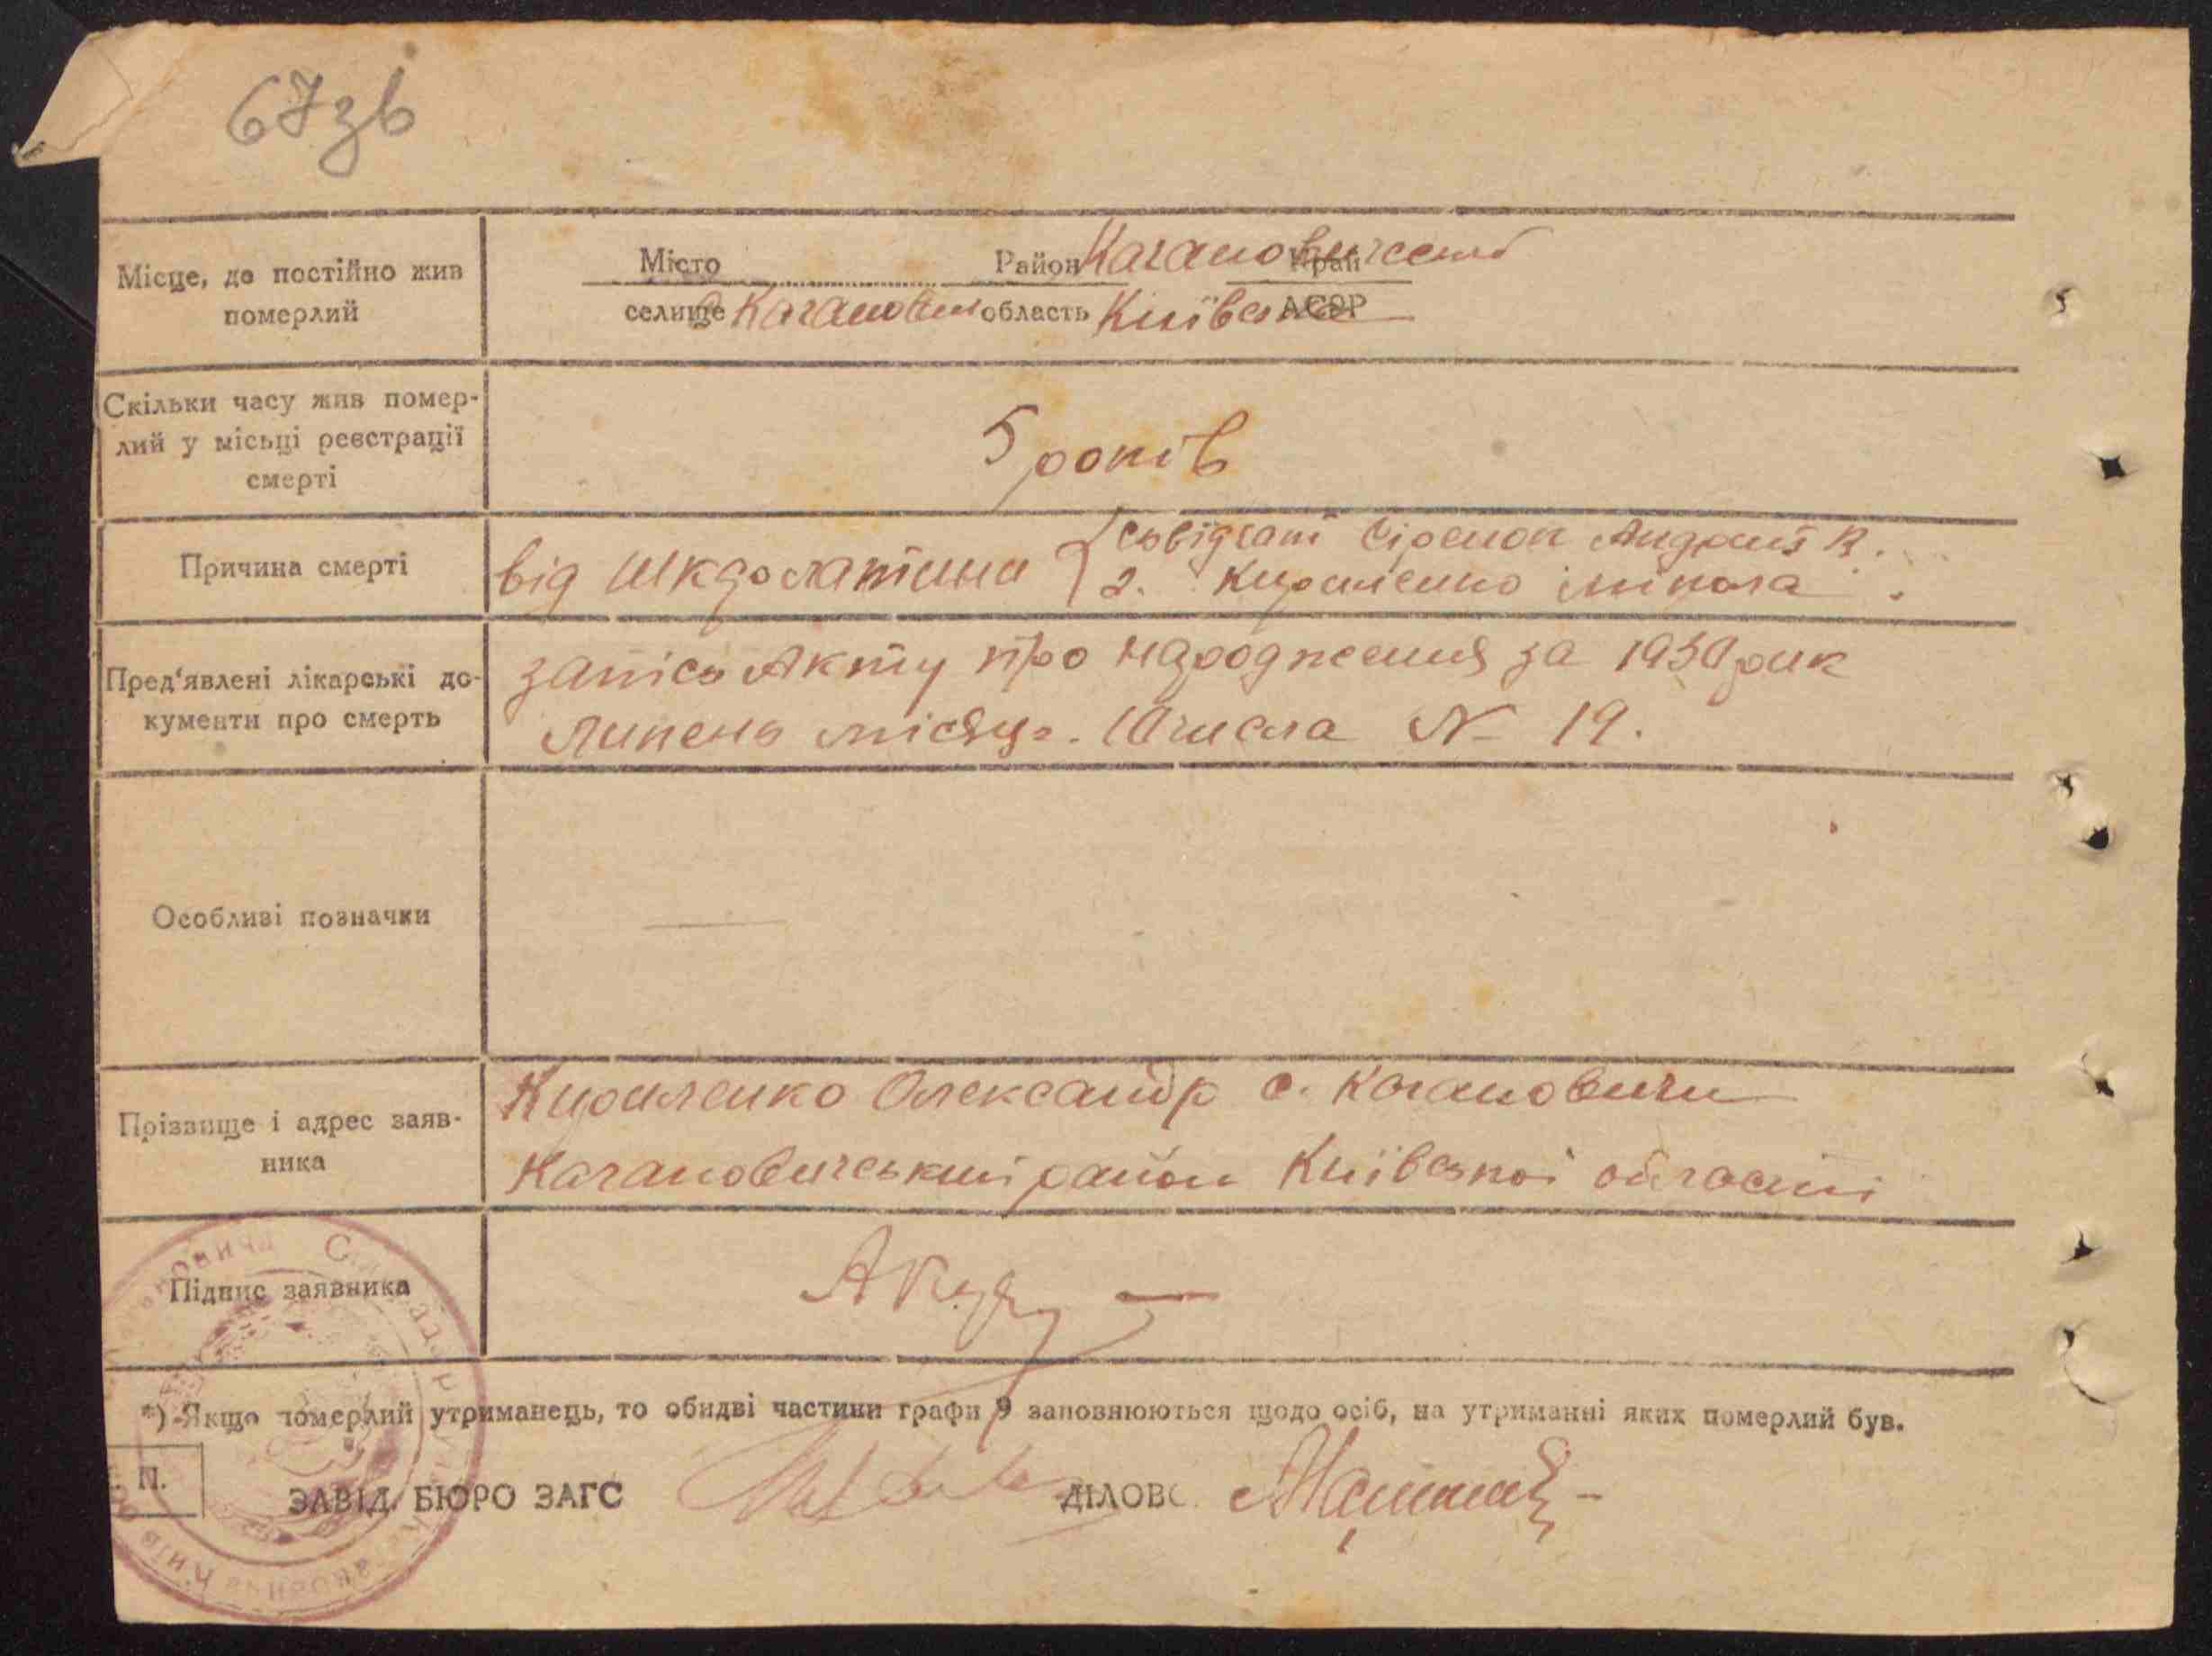 67зв
Місце, де постійно жив
померлий
Місто Район Кагановичеський Край
селище Кагановичи область Київська АСРР
Скільки часу жив помер-
лий у місьці реєстрації
смерті
5 років
Причина смерті
від шкдолатини { свідкам Сіренок Андрій К.
2. Кириленко микола.
Пред'явлені лікарські до-
кументи про смерть
запісь Акту про народження за 1930 рик
липень місяць. 10 числа № 19.
Особливі позначки
—
Прізвище і адрес заяв-
ника
Кириленко Олександр с. Кагановичи
Кагановичський район Київської області
Підпис заявника
*) Якщо померлий утриманець, то обидві частини графи 9 заповнюються щодо осіб, на утриманні яких померлий був.
П.
ЗАВІД. БЮРО ЗАГС ДІЛОВС